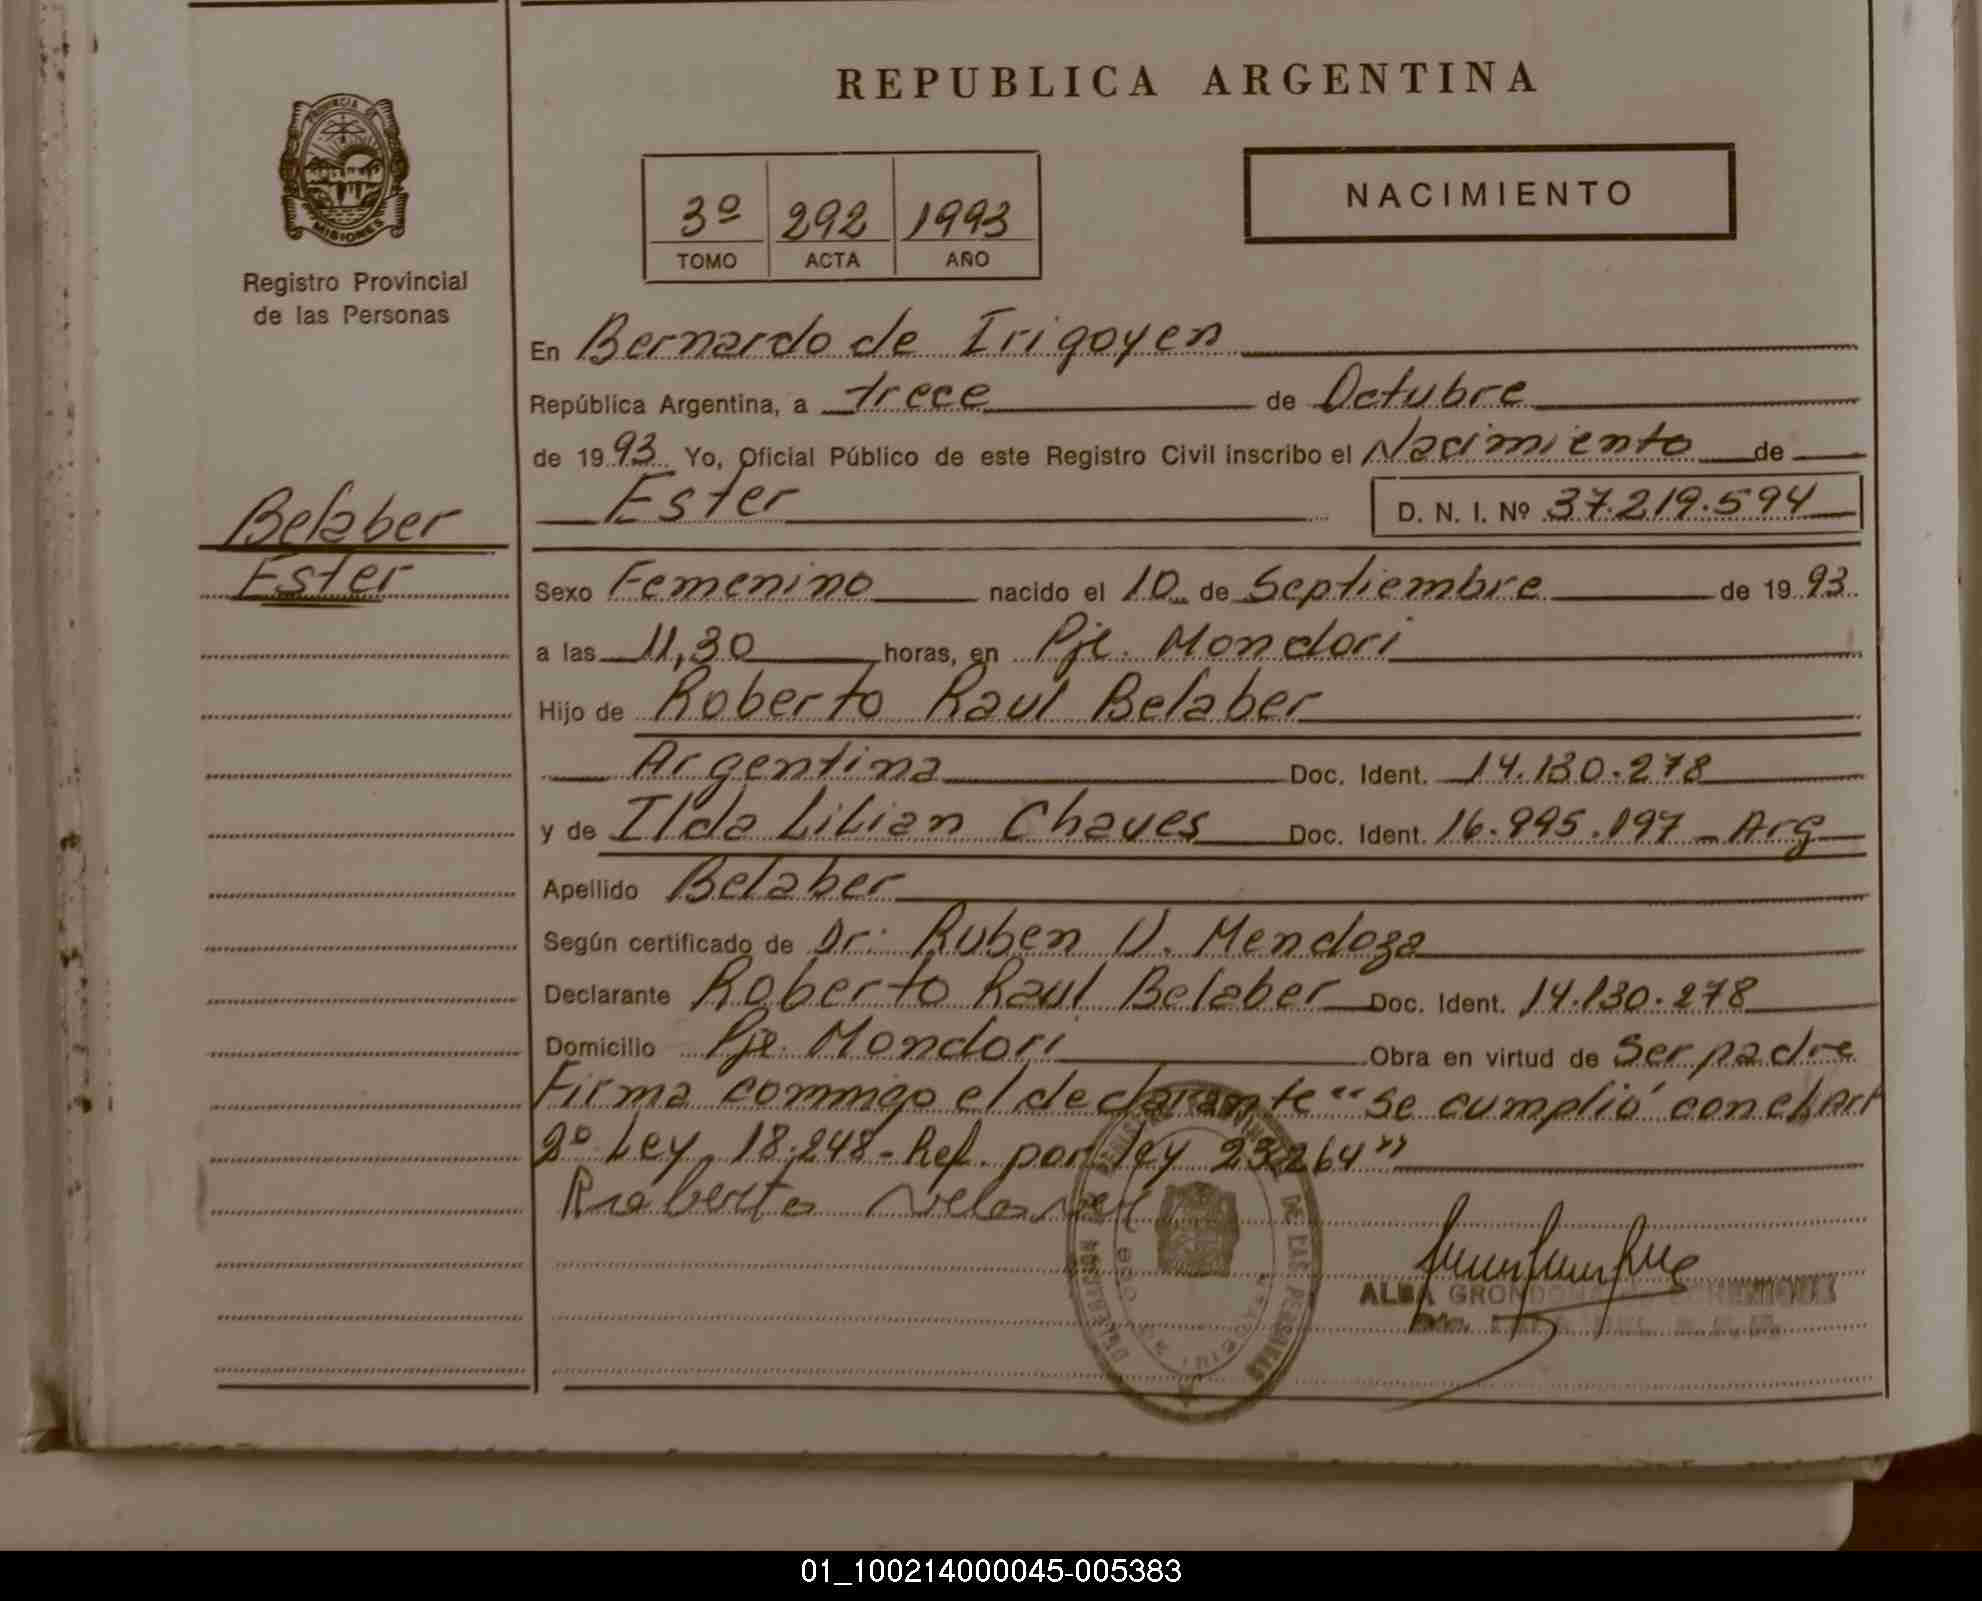 REPUBLICA ARGENTINA
PROVINCIA DE
MISIONES
Registro Provincial
de las Personas
3º 292 1993
TOMO ACTA AÑO
NACIMIENTO
En Bernardo de Irigoyen
República Argentina, a trece de Octubre
de 1993 Yo, Oficial Público de este Registro Civil inscribo el Nacimiento de
Ester D. N. I. Nº 37.219.594
Belaber
Ester
Sexo Femenino nacido el 10 de Septiembre de 1993
a las 11,30 horas, en Pje. Mondori
Hijo de Roberto Raul Belaber
Argentina Doc. Ident. 14.130.278
y de Ilda Lilian Chaves Doc. Ident. 16.995.197 - Arg
Apellido Belaber
Según certificado de Dr: Ruben V. Mendoza
Declarante Roberto Raul Belaber Doc. Ident. 14.130.278
Domicilio Pje. Mondori Obra en virtud de Ser padre
Firma conmigo el declarante "se cumplió con el Art
2º Ley 18.248 - Ref. por ley 23264"
Roberto
DE LAS PERSONAS
ALBA GRONDONA DE
01_100214000045-005383